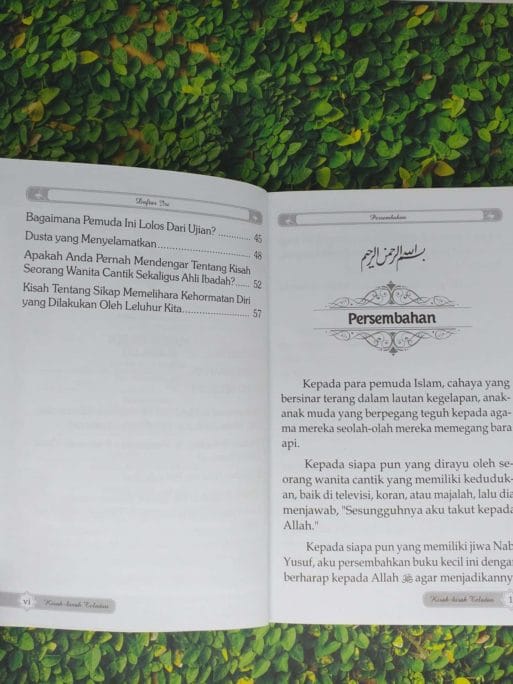 Daftar Isi
Bagaimana Pemuda Ini Lolos Dari Ujian? .......... 45
Dusta yang Menyelamatkan .......... 48
Apakah Anda Pernah Mendengar Tentang Kisah
Seorang Wanita Cantik Sekaligus Ahli Ibadah? .... 52
Kisah Tentang Sikap Memelihara Kehormatan Diri
yang Dilakukan Oleh Leluhur Kita .......... 57
vi
Kisah-kisah Teladan
Persembahan
بسم الله الرحمن الرحيم
Persembahan
Kepada para pemuda Islam, cahaya yang
bersinar terang dalam lautan kegelapan, anak-
anak muda yang berpegang teguh kepada aga-
ma mereka seolah-olah mereka memegang bara
api.
Kepada siapa pun yang dirayu oleh se-
orang wanita cantik yang memiliki keduduk-
an, baik di televisi, koran, atau majalah, lalu dia
menjawab, "Sesungguhnya aku takut kepada
Allah."
Kepada siapa pun yang memiliki jiwa Nab
Yusuf, aku persembahkan buku kecil ini dengan
berharap kepada Allah ﷻ agar menjadikanny
Kisah-kisah Teladan
1